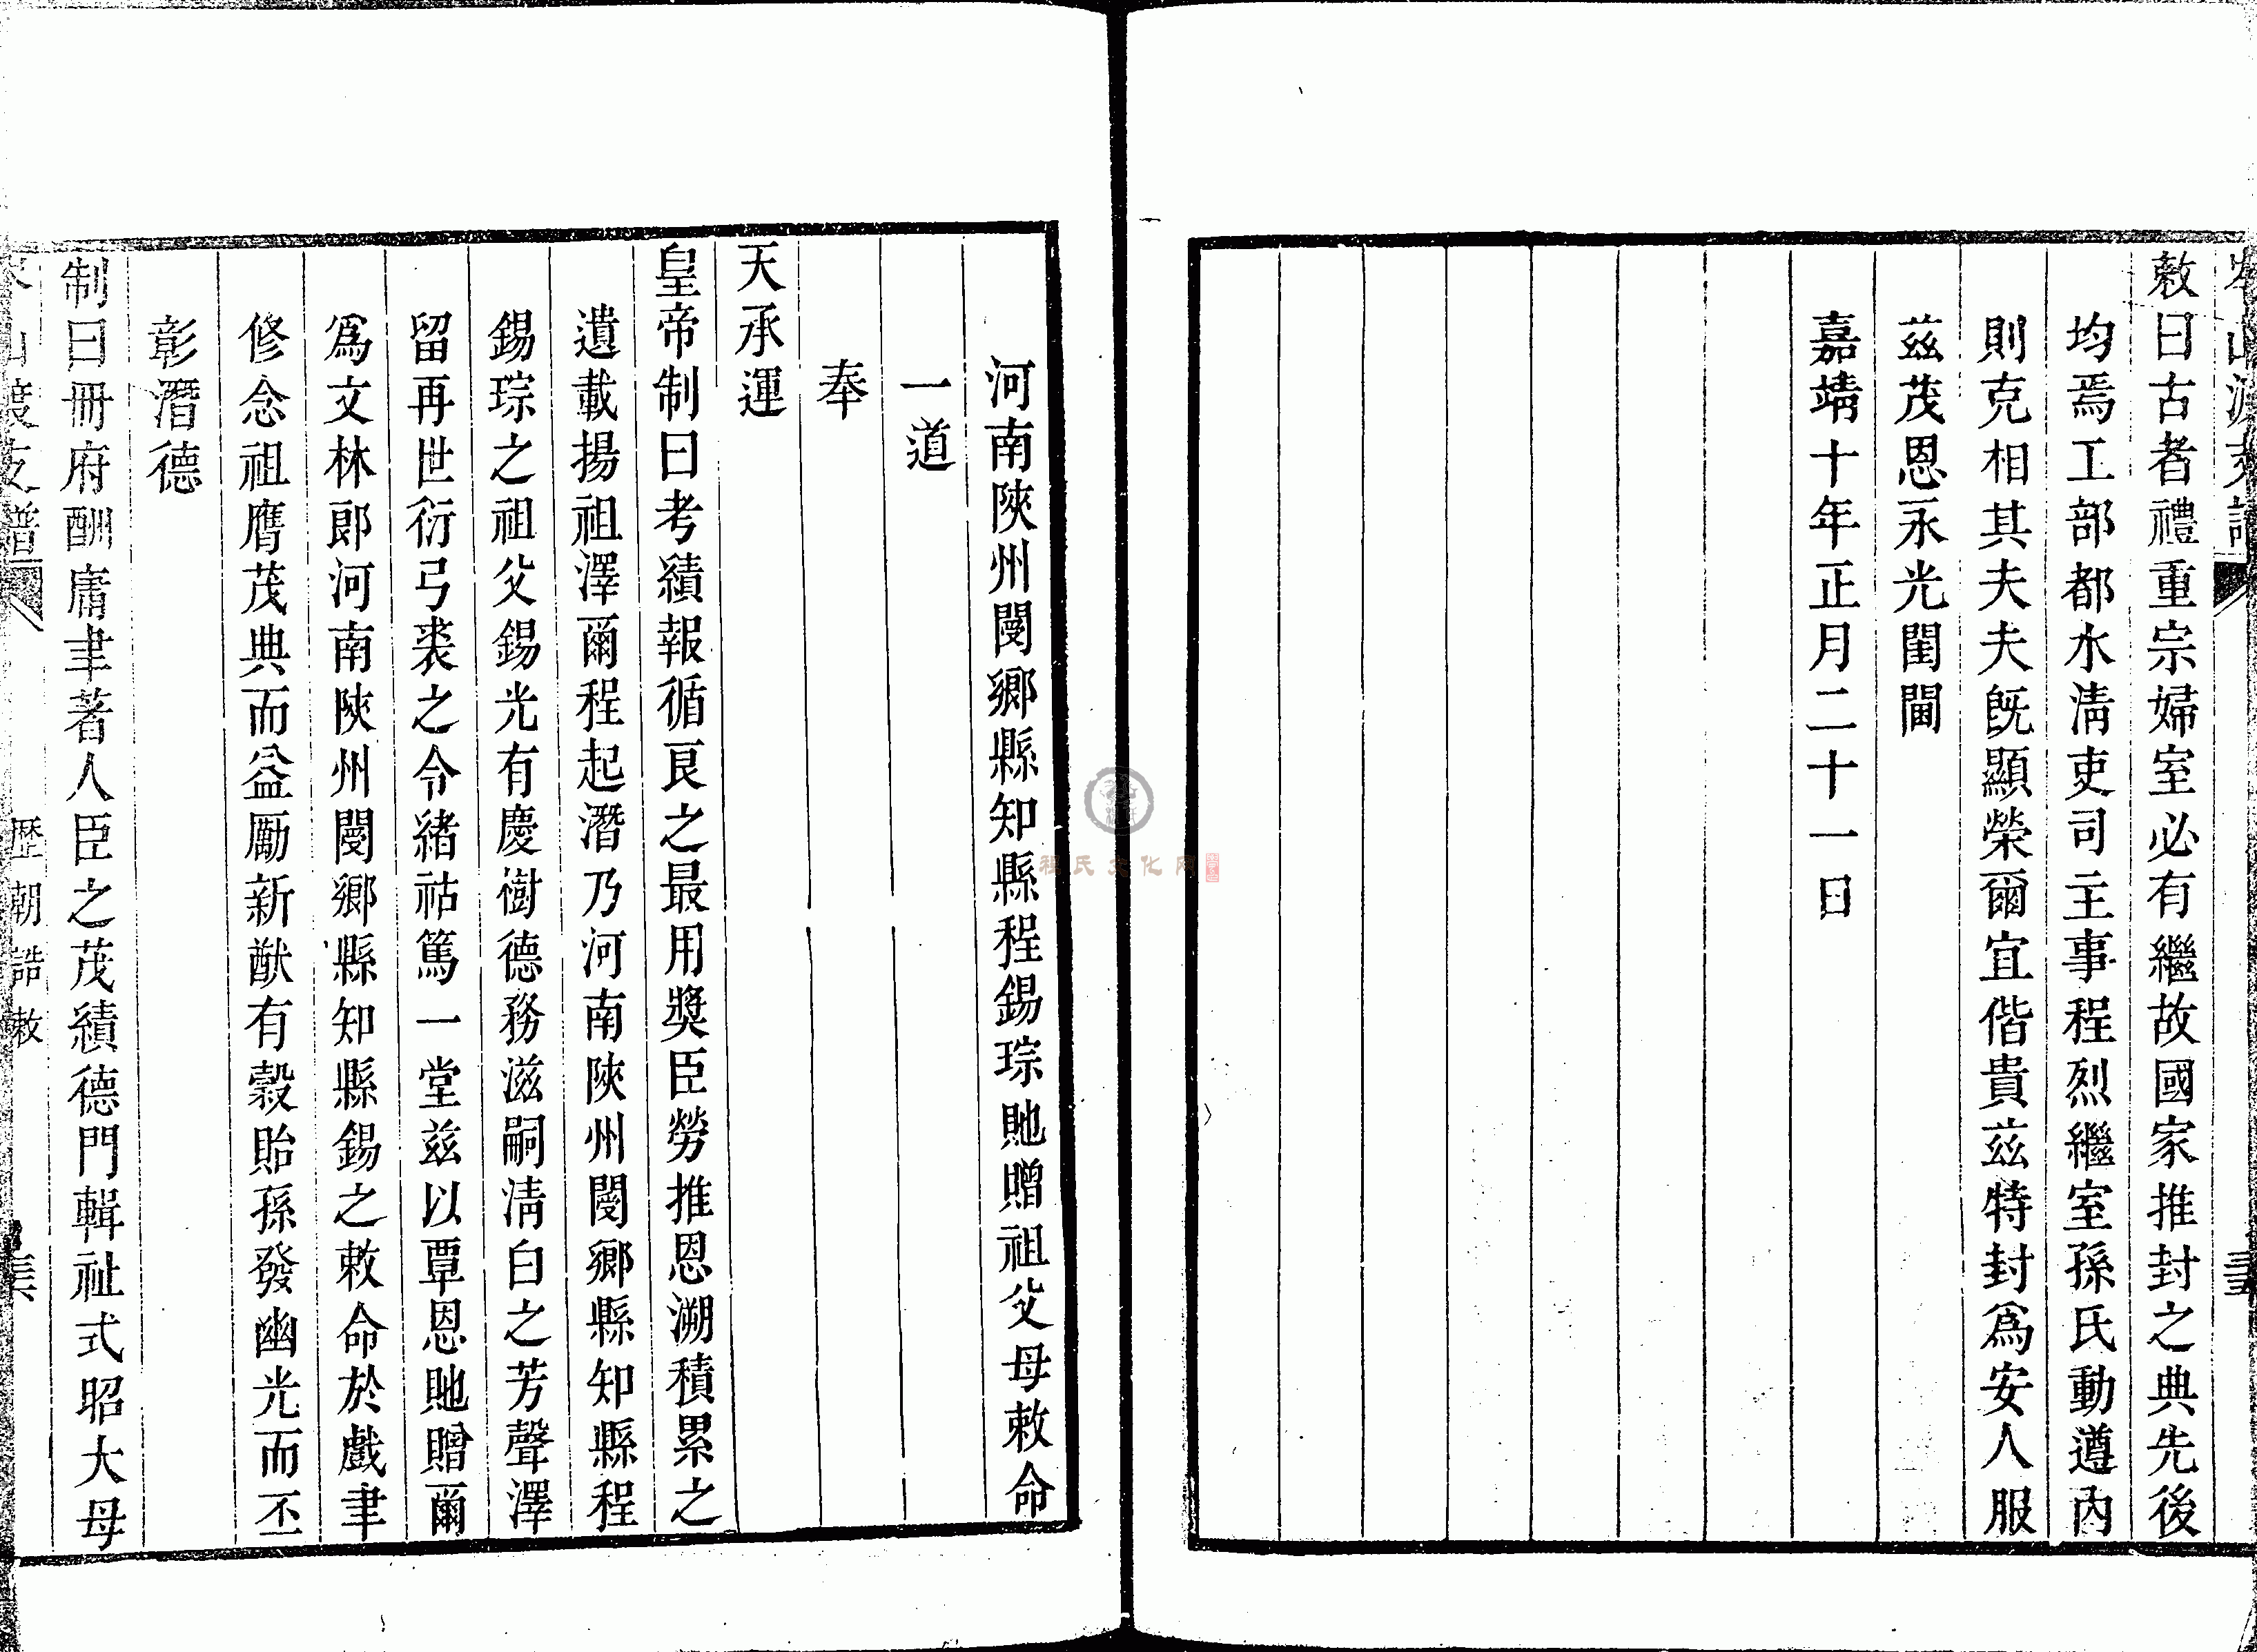 敕曰古者禮重宗婦室必有繼故國家推封之典先後
均焉工部都水清吏司主事程烈繼室孫氏動遵內
則克相其夫夫既顯榮爾宜偕貴茲特封爲安人服
茲茂恩永光閨閫
嘉靖十年正月二十一日
河南陝州閿鄉縣知縣程錫琮貤贈祖父母敕命
一道
奉
天承運
皇帝制曰考績報循良之最用獎臣勞推恩溯積累之
遺載揚祖澤爾程起潛乃河南陝州閿鄉縣知縣程
錫琮之祖父錫光有慶樹德務滋嗣清白之芳聲澤
留再世衍弓裘之令緒祜篤一堂茲以覃恩貤贈爾
爲文林郎河南陝州閿鄉縣知縣錫之敕命於戲聿
修念祖膺茂典而益勵新猷有穀貽孫發幽光而丕
彰潛德
制曰冊府酬庸聿著人臣之茂績德門輯祉式昭大母
山渡支譜
歷朝誥敕
程氏文化网